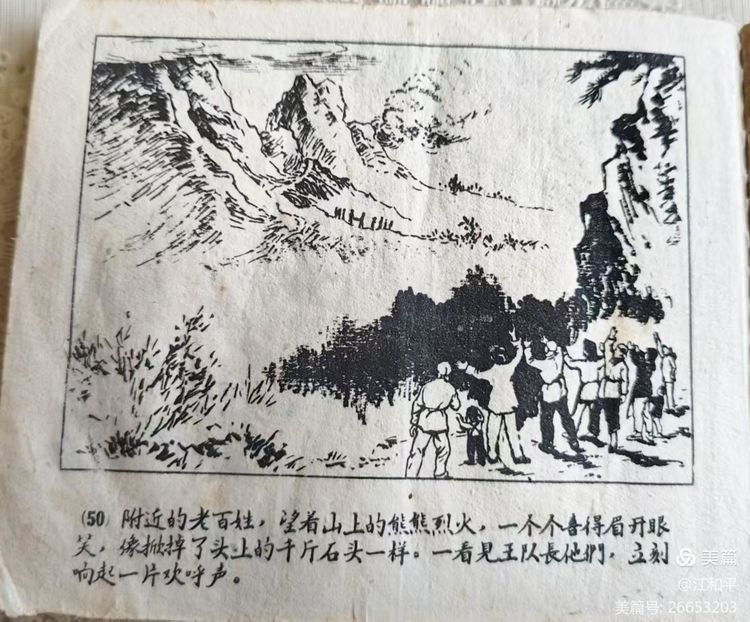 (50) 附近的老百姓，望着山上的熊熊烈火，一个个喜得眉开眼
笑，像掀掉了头上的千斤石头一样。一看見王队長他們，立刻
响起一片欢呼声。
美篇
@江和平
美篇号: 26653203